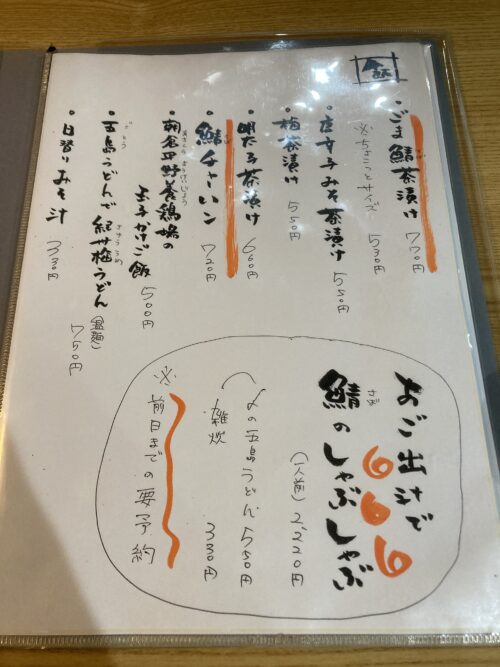 ・ごま鯖茶漬け 770円
※ちょこっとサイズ 530円
・唐辛子みそ茶漬け 550円
・梅茶漬け 550円
・明太子茶漬け 660円
・鯖チャーハン 720円
・朝倉平野養鶏場の
玉子かけご飯 500円
・五島うどんで紀州梅うどん(温麺) 750円
・日替りみそ汁 330円
あご出汁で
鯖のしゃぶしゃぶ
さば
(一人前) 2,220円
〆の五島うどん 550円
雑炊 330円
※前日までの要予約